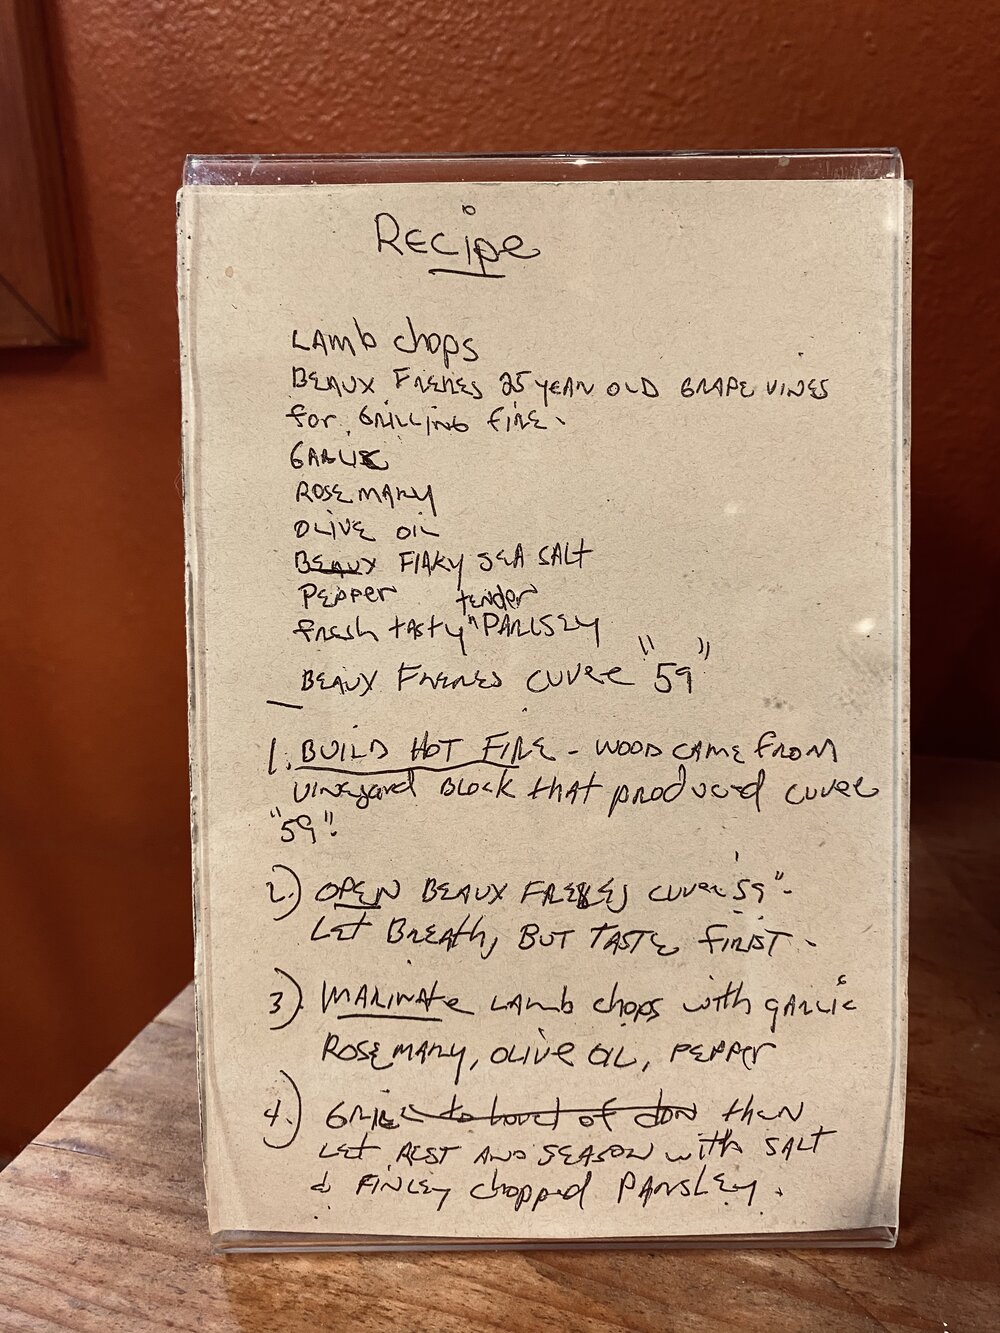 Recipe
LAmb chops
BEAUX FRERES 25 YEAR OLD GRAPE VINES
for GRILLING fire.
GARLIC
ROSEMARY
OLIVE OIL
BEAUX FlAKY SEA SALT
PEPPER tender
fresh tasty PARLSEY
BEAUX FRERES CUVEE "59"
1. BUILD HOT FIRE - WOOD CAME FROM
VINEyard BLOCK that produced cuvee
"59".
2.) OPEN BEAUX FRERES cuvee '59".
Let BREAth, BUT TASTE FIRST.
3.) MARINAte LAmb chops with garlic
ROSEMARY, OLIVE OIL, PEPPER
4.) GRILL then
Let REST AND SEASON with SALT
& FINLEY chopped PARSLEY.